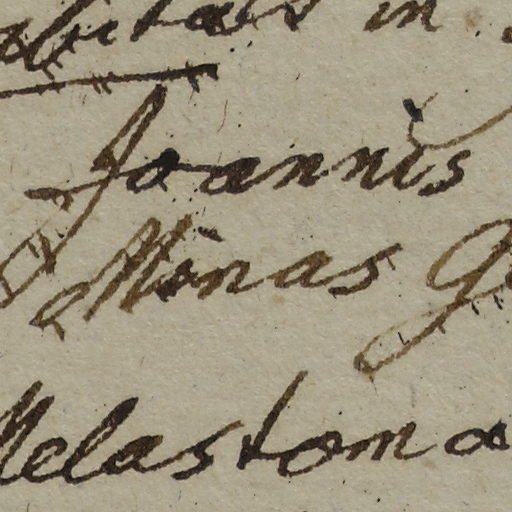 abitat in
Joannis
& Minas G
Melastoma